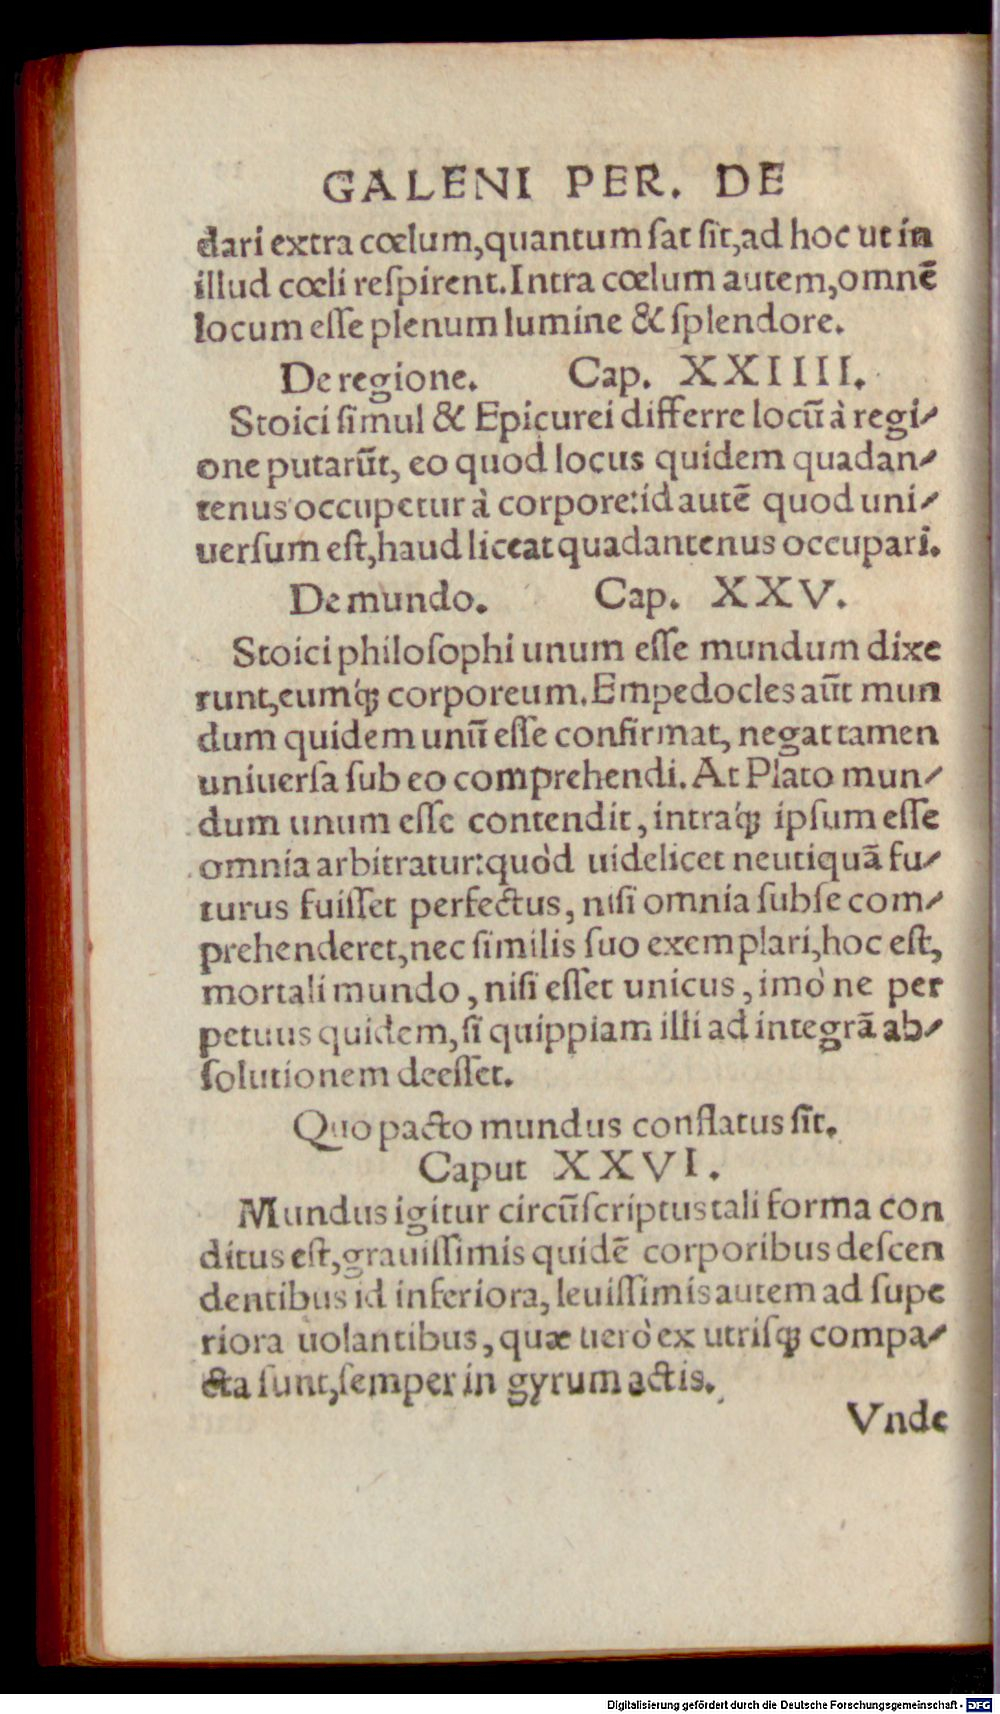 GALENI PER. DE
dari extra cœlum, quantum ſat ſit, ad hoc ut in
illud cœli reſpirent. Intra cœlum autem, omnẽ
locum eſſe plenum lumine & ſplendore.
De regione. Cap. XXIIII.
Stoici ſimul & Epicurei differre locũ à regi-
one putarũt, eo quod locus quidem quadan-
tenus occupetur à corpore: id autẽ quod uni-
uerſum eſt, haud liceat quadantenus occupari.
De mundo. Cap. XXV.
Stoici philoſophi unum eſſe mundum dixe
runt, eumq́ꝫ corporeum. Empedocles aũt mun
dum quidem unũ eſſe confirmat, negat tamen
uniuerſa ſub eo comprehendi. At Plato mun-
dum unum eſſe contendit, intraq́ꝫ ipſum eſſe
omnia arbitratur: quòd uidelicet neutiquã fu-
turus fuiſſet perfectus, niſi omnia ſub ſe com-
prehenderet, nec ſimilis ſuo exemplari, hoc eſt,
mortali mundo, niſi eſſet unicus, imò ne per
petuus quidem, ſi quippiam illi ad integrã ab-
ſolutionem deeſſet.
Quo pacto mundus conflatus ſit.
Caput XXVI.
Mundus igitur circũſcriptus tali forma con
ditus eſt, grauiſſimis quidẽ corporibus deſcen
dentibus id inferiora, leuiſſimis autem ad ſupe
riora uolantibus, quæ uerò ex utriſqꝫ compa-
cta ſunt, ſemper in gyrum actis.
Vnde
Digitalisierung gefördert durch die Deutsche Forschungsgemeinschaft - DFG